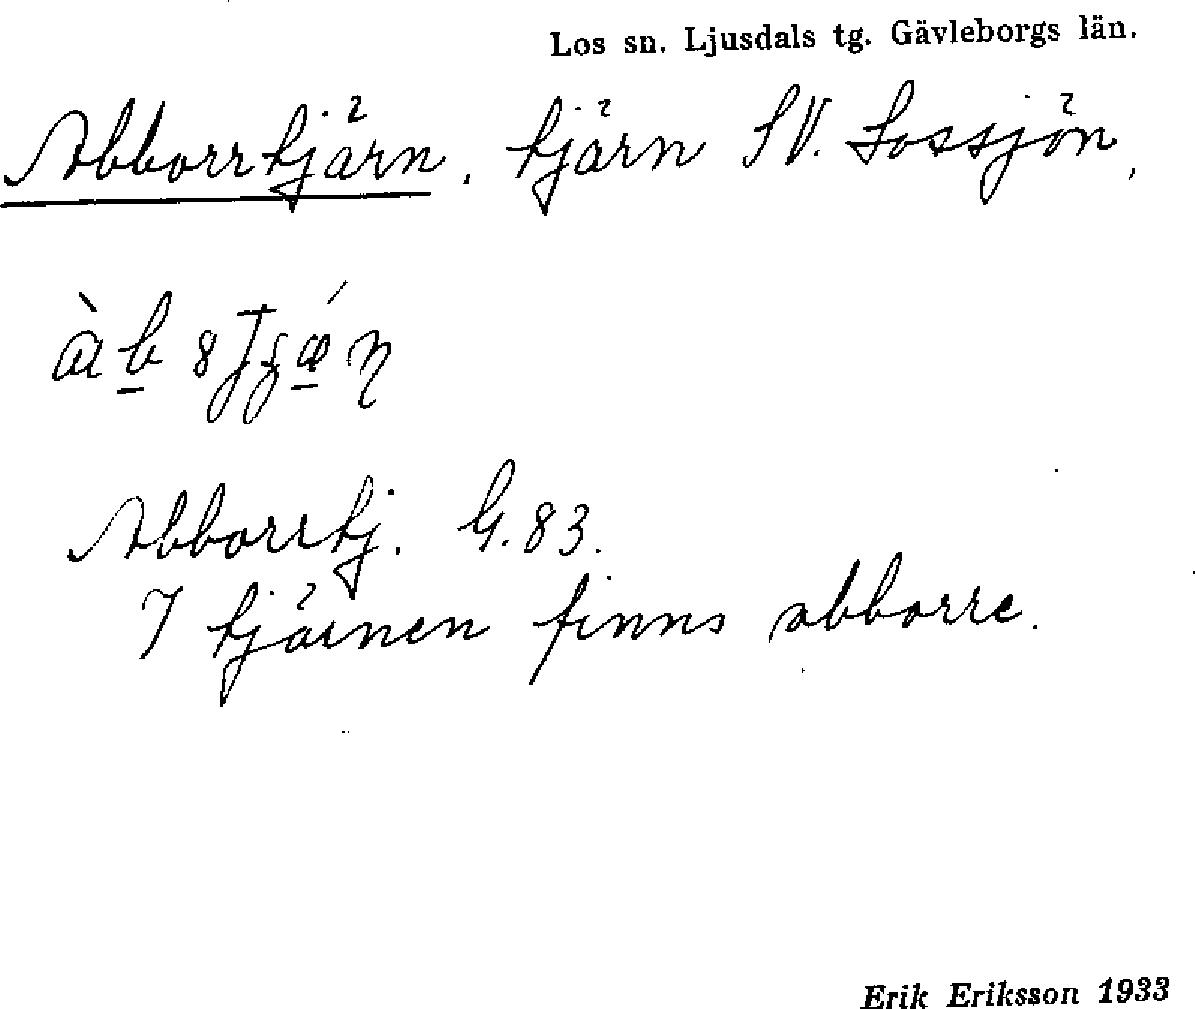 Los sn. Ljusdals tg. Gävleborgs län.
Abborrtjärn. tjärn SV. Lossjön,
Abborrtj. G. 83.
I tjärnen finns abborre.
Erik Eriksson 1933